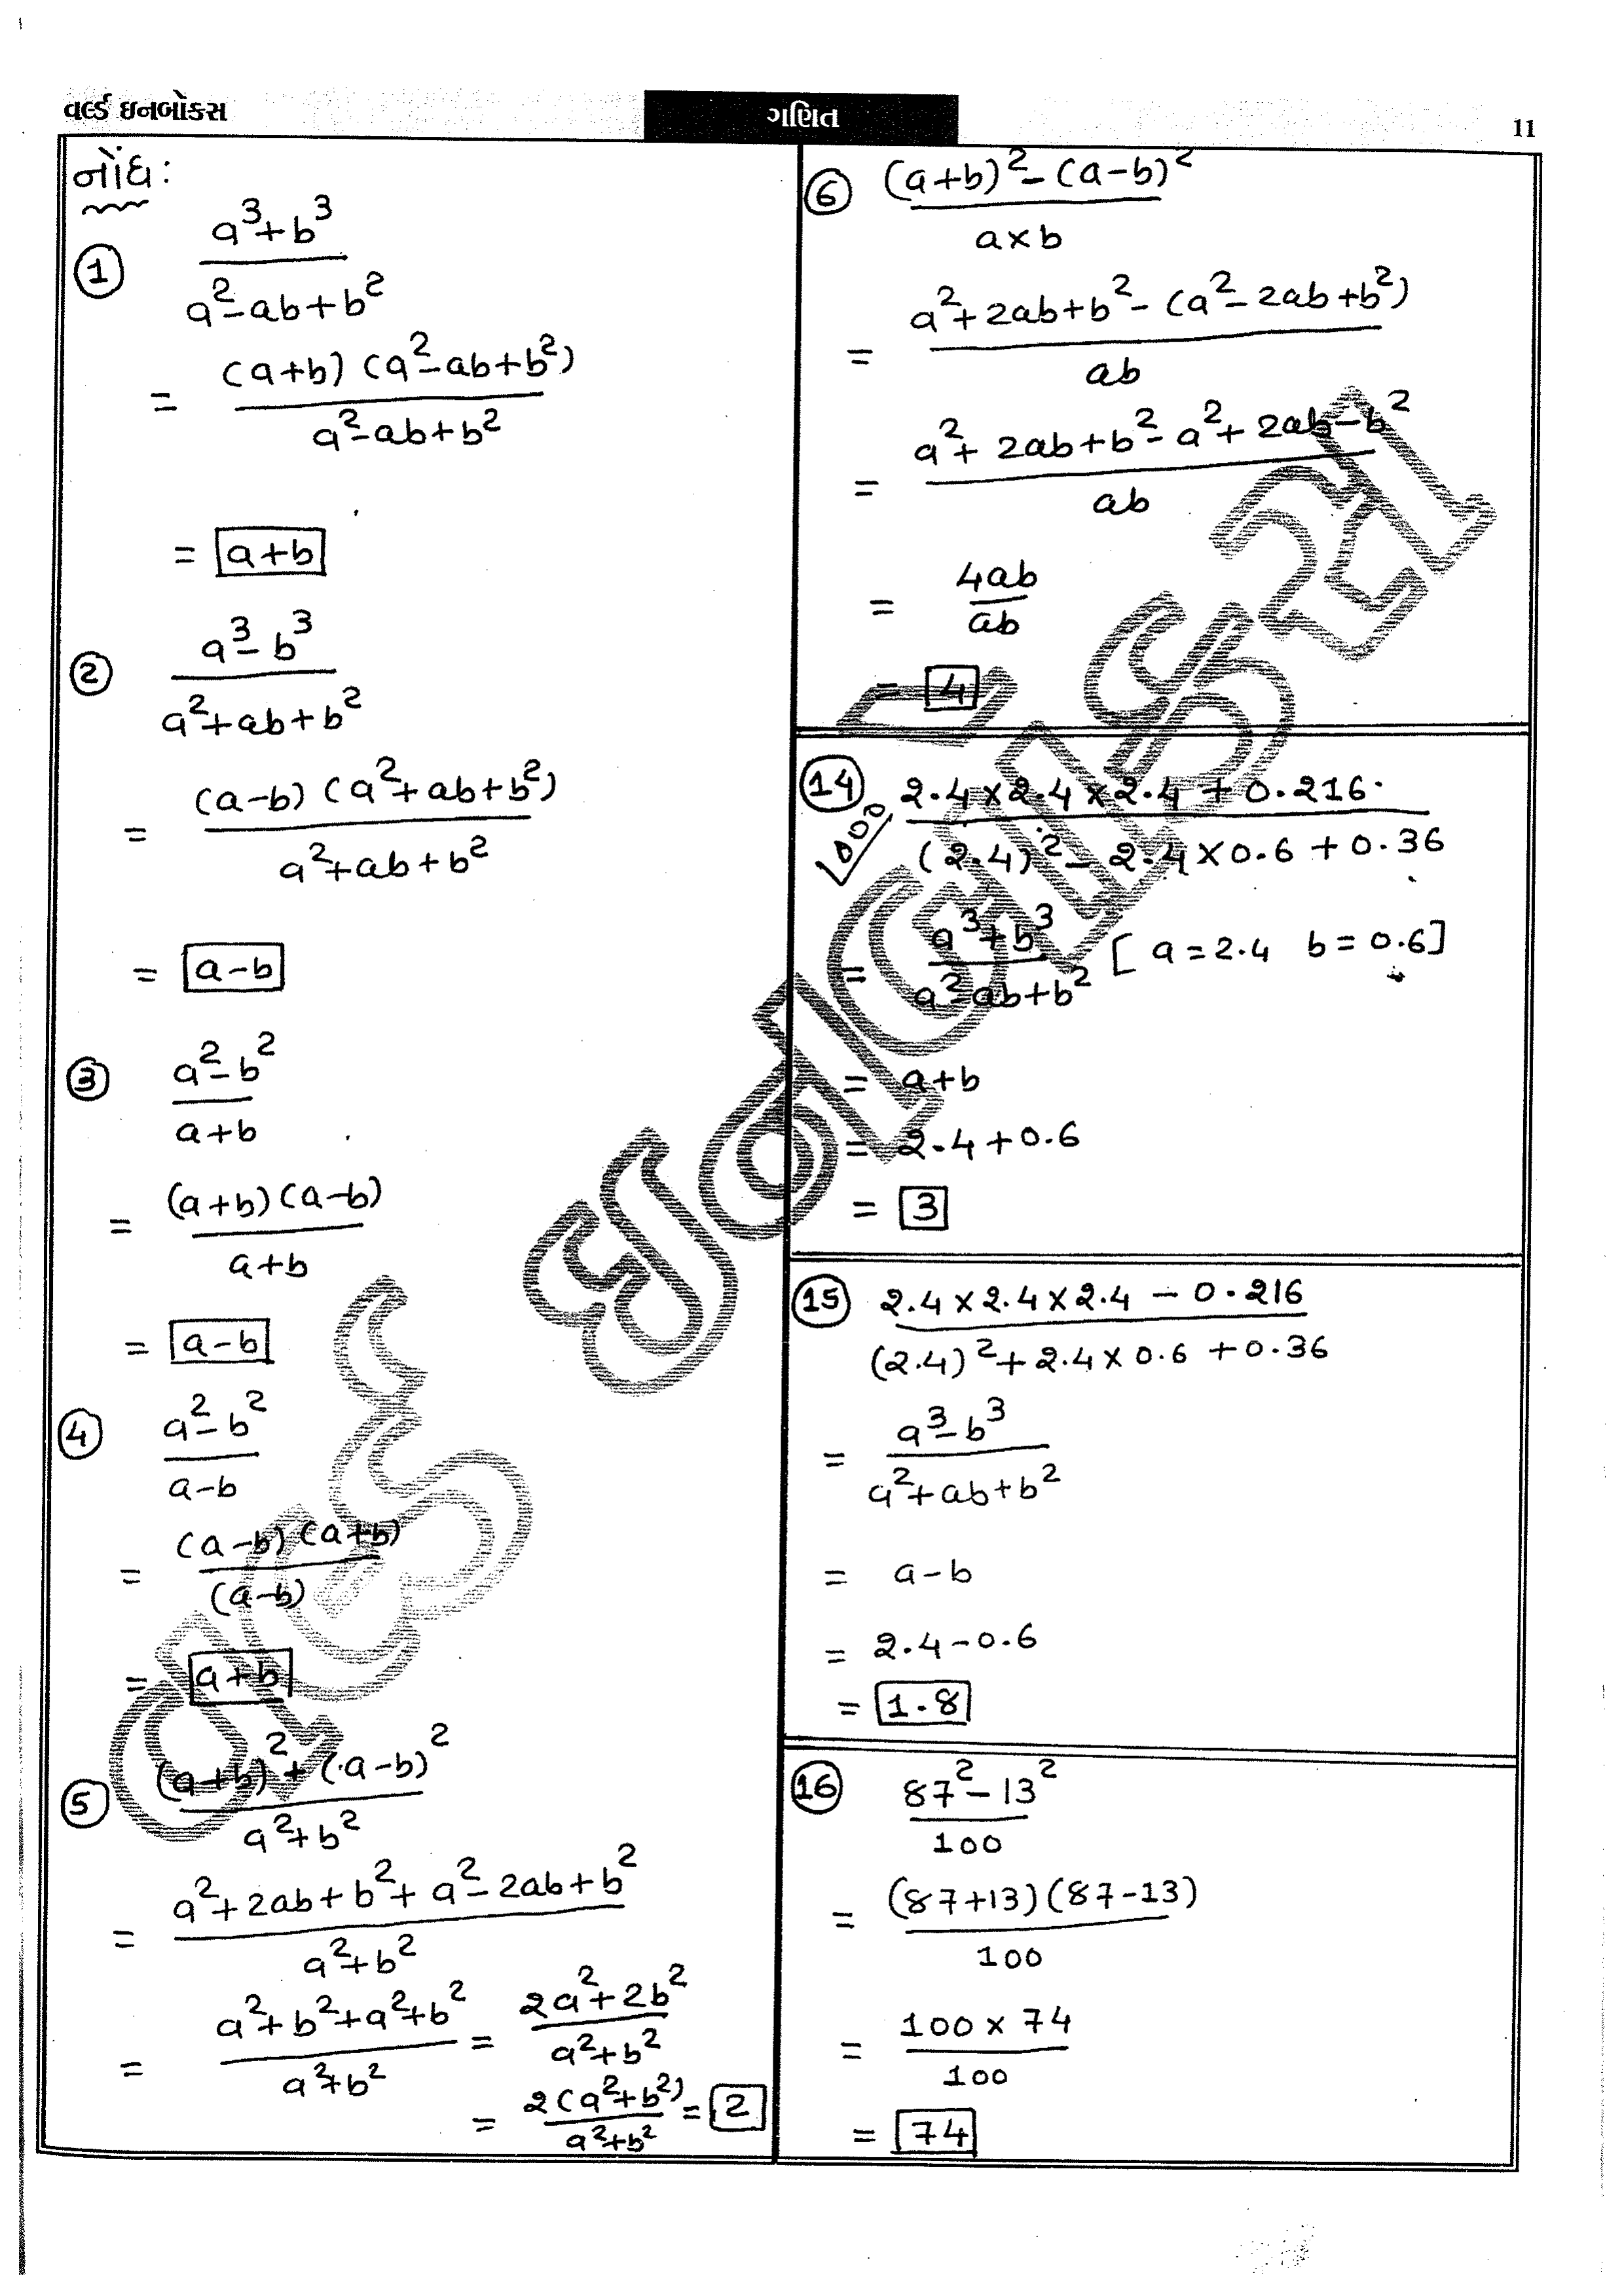 વર્લ્ડ ઇનબોક્સ
ગણિત
11
નોંધ:
① a³+b³
a²-ab+b²
= (a+b) (a²-ab+b²)
a²-ab+b²
= a+b
② a³-b³
a²+ab+b²
= (a-b) (a²+ab+b²)
a²+ab+b²
= a-b
③ a²-b²
a+b
= (a+b)(a-b)
a+b
= a-b
④ a²-b²
a-b
= (a-b)(a+b)
(a-b)
= a+b
⑤ (a+b)²+(a-b)²
a²+b²
= a²+2ab+b²+a²-2ab+b²
a²+b²
= a²+b²+a²+b² = 2a²+2b²
a²+b² a²+b²
= 2(a²+b²) = 2
a²+b²
⑥ (a+b)²-(a-b)²
a×b
= a²+2ab+b²-(a²-2ab+b²)
ab
= a²+2ab+b²-a²+2ab-b²
ab
= 4ab
ab
= 4
⑭ 2.4×2.4×2.4+0.216
1000
(2.4)²-2.4×0.6+0.36
= a³+b³ [a=2.4 b=0.6]
a²-ab+b²
= a+b
= 2.4+0.6
= 3
⑮ 2.4×2.4×2.4-0.216
(2.4)²+2.4×0.6+0.36
= a³-b³
a²+ab+b²
= a-b
= 2.4-0.6
= 1.8
⑯ 87²-13²
100
= (87+13)(87-13)
100
= 100×74
100
= 74
વર્લ્ડ ઇનબોક્સ